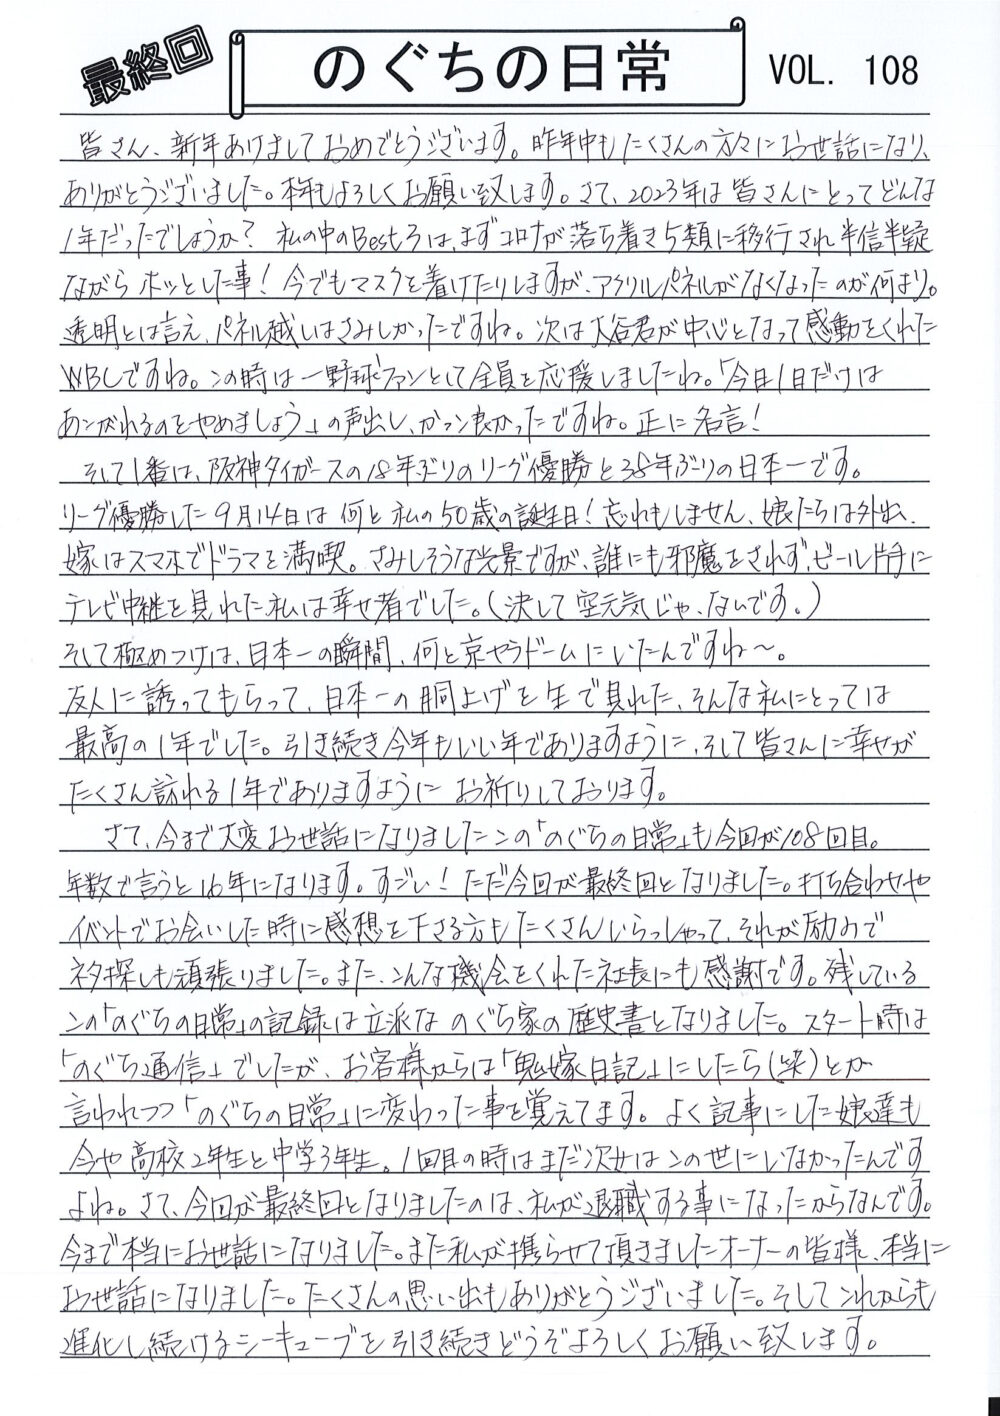 最終回
のぐちの日常
VOL. 108
皆さん、新年あけましておめでとうございます。昨年中もたくさんの方々にお世話になり、
ありがとうございました。本年もよろしくお願い致します。さて、2023年は皆さんにとってどんな
1年だったでしょうか? 私の中のBest3は、まずコロナが落ち着き5類に移行され半信半疑
ながらホッとした事!今でもマスクを着けたりしますが、アクリルパネルがなくなったのが何より。
透明とは言え、パネル越しはさみしかったですね。次は大谷君が中心となって感動をくれた
WBCですね。この時は一野球ファンとして全員を応援しましたね。「今日1日だけは
あこがれるのをやめましょう」の声出し、カッコ良かったですね。正に名言!
そして1番は、阪神タイガースの18年ぶりのリーグ優勝と38年ぶりの日本一です。
リーグ優勝した9月14日は何と私の50歳の誕生日!忘れもしません、娘たちは外出、
嫁はスマホでドラマを満喫。さみしそうな光景ですが、誰にも邪魔をされず、ビール片手に
テレビ中継を見れた私は幸せ者でした。(決して空元気じゃ、ないです。)
そして極めつけは、日本一の瞬間、何と京セラドームにいたんですね～。
友人に誘ってもらって、日本一の胴上げを生で見れた、そんな私にとっては
最高の1年でした。引き続き今年もいい年でありますように、そして皆さんに幸せが
たくさん訪れる1年でありますように お祈りしております。
さて、今まで大変お世話になりましたこの「のぐちの日常」も今回が108回目。
年数で言うと16年になります。すごい!ただ今回が最終回となりました。打ち合わせや
イベントでお会いした時に感想を下さる方もたくさんいらっしゃって、それが励みで
ネタ探しも頑張りました。また、こんな機会をくれた社長にも感謝です。残している
この「のぐちの日常」の記録は立派な のぐち家の歴史書となりました。スタート時は
「のぐち通信」でしたが、お客様からは「鬼嫁日記」にしたら(笑)とか
言われつつ「のぐちの日常」に変わった事を覚えてます。よく記事にした娘達も
今や高校2年生と中学3年生。1回目の時はまだ次女はこの世にいなかったんです
よね。さて、今回が最終回となりましたのは、私が退職する事になったからなんです。
今まで本当にお世話になりました。また私が携らせて頂きましたオーナーの皆様、本当に
お世話になりました。たくさんの思い出もありがとうございました。そしてこれからも
進化し続けるシーキューブを引き続きどうぞよろしくお願い致します。